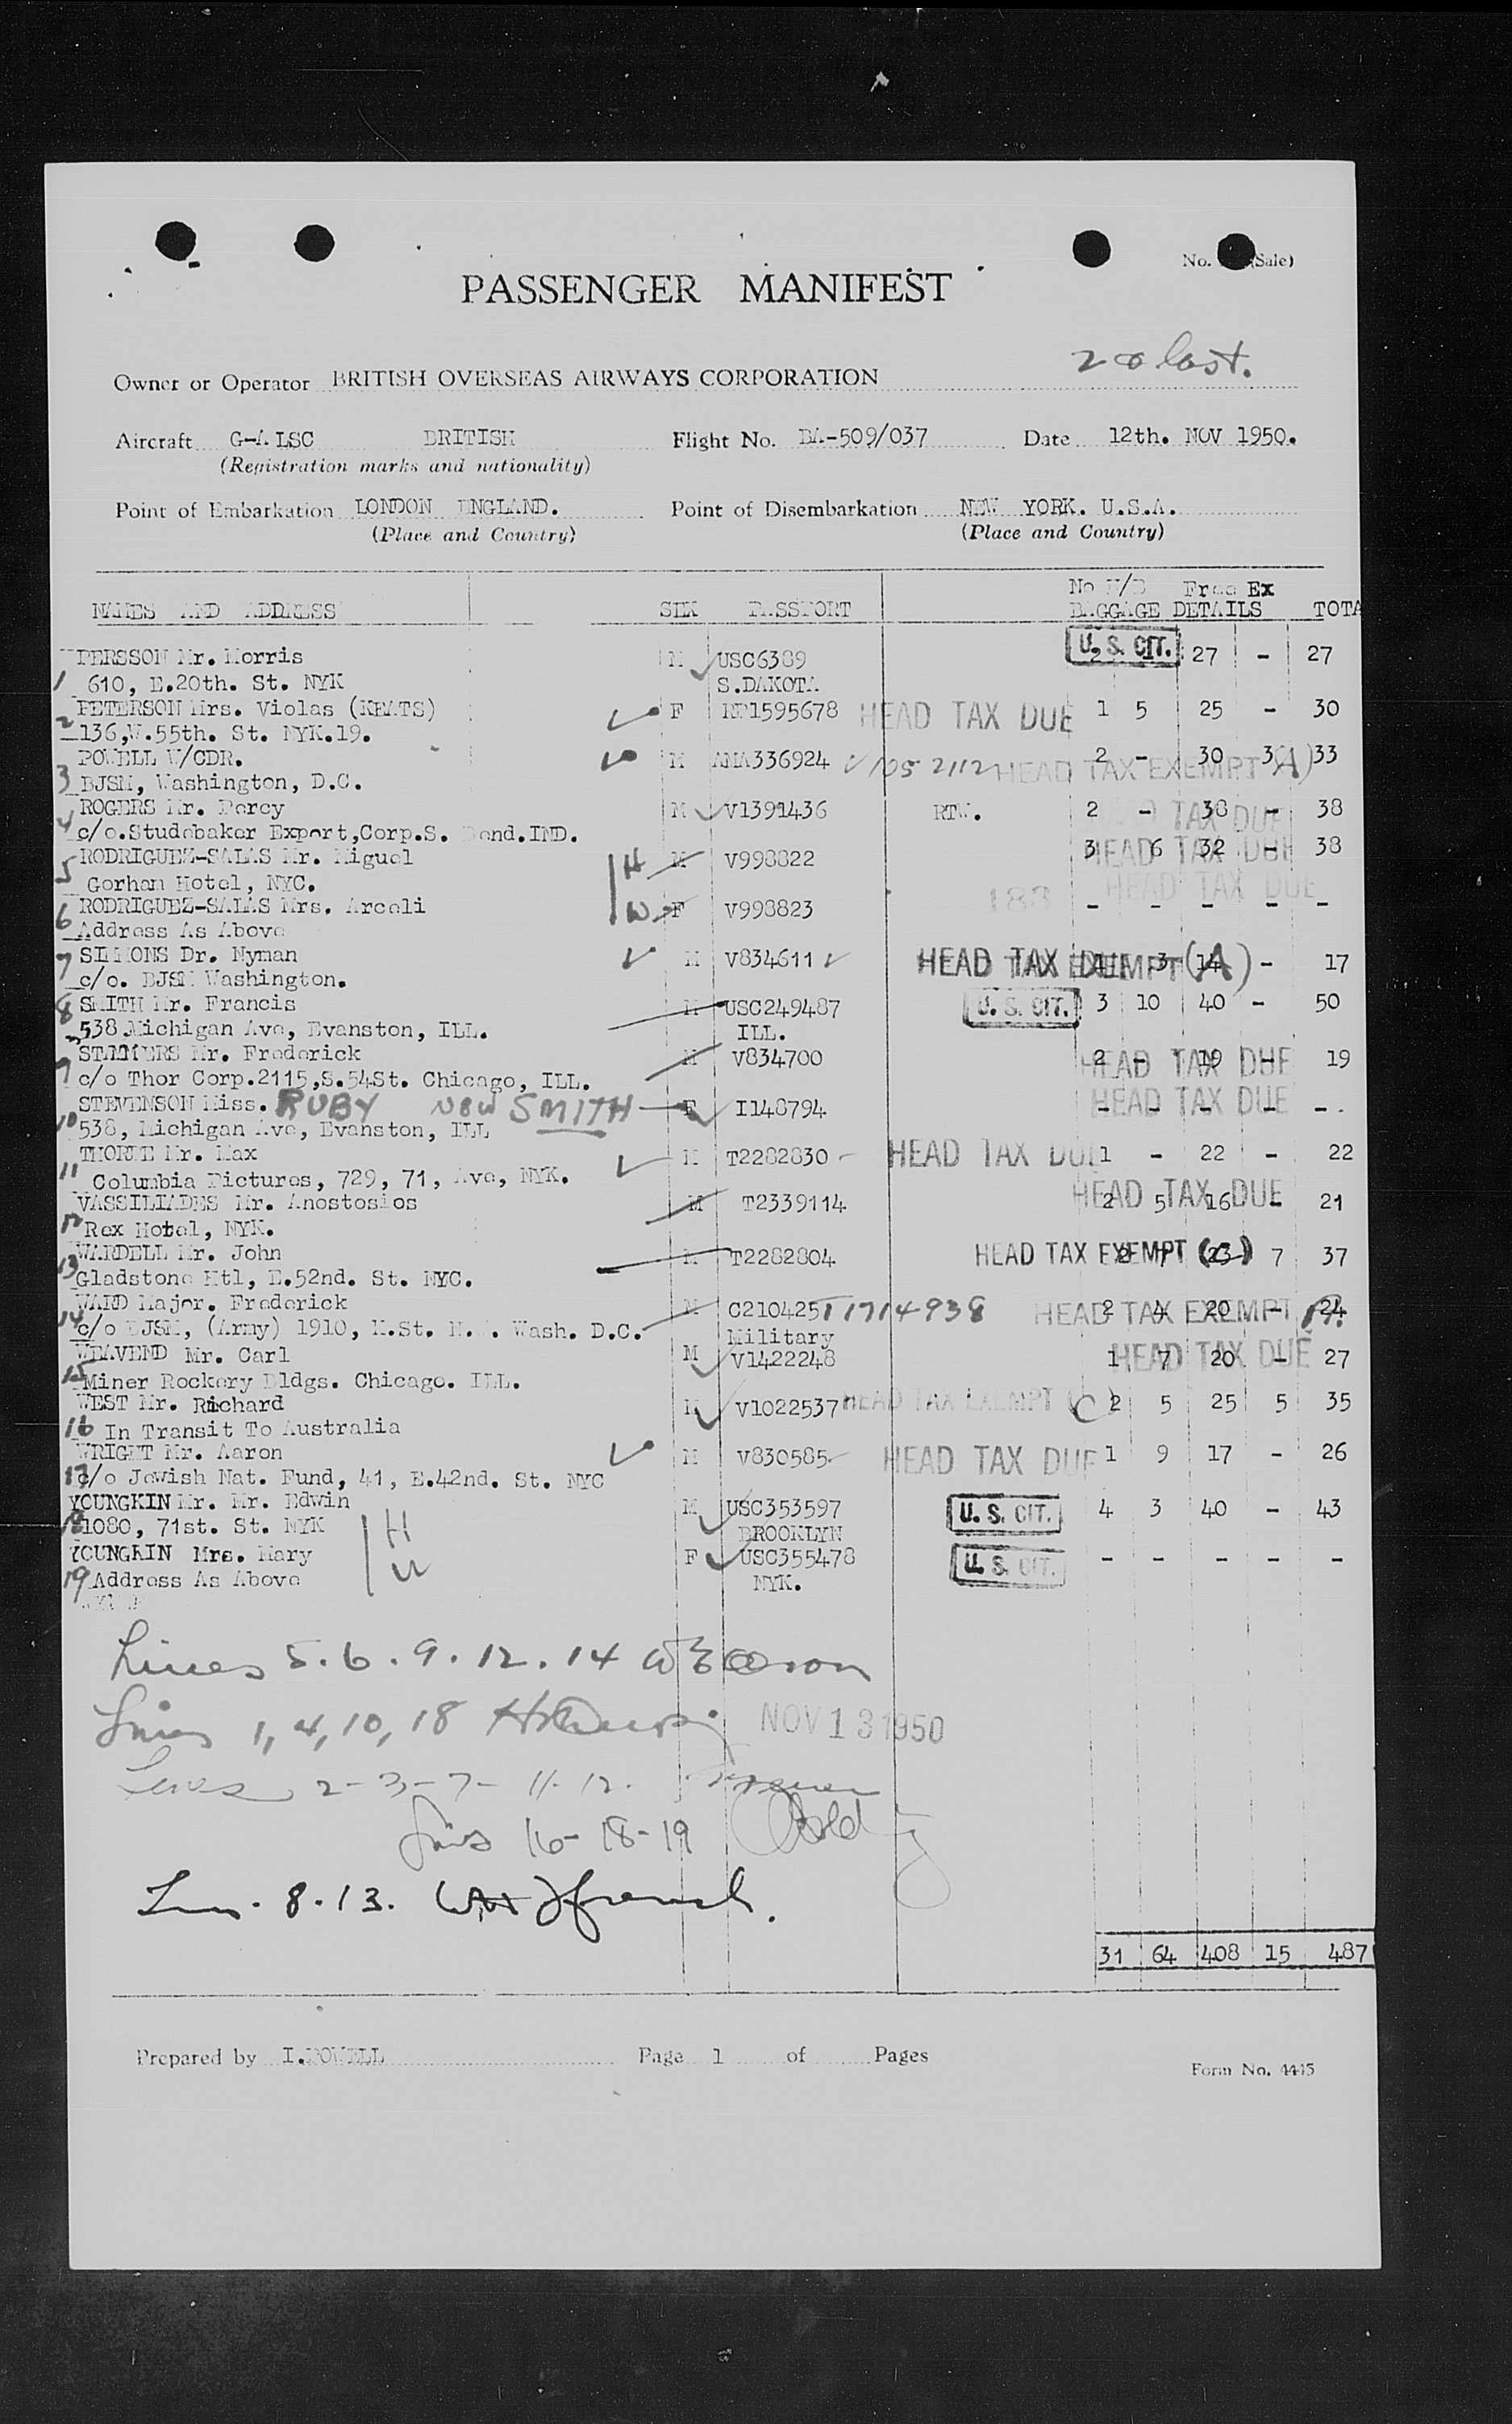 No. (Sale)
PASSENGER MANIFEST
20 last.
Owner or Operator BRITISH OVERSEAS AIRWAYS CORPORATION
Aircraft G-ALSC BRITISH Flight No. BA-509/037 Date 12th. NOV 1950.
(Registration marks and nationality)
Point of Embarkation LONDON ENGLAND. Point of Disembarkation NEW YORK. U.S.A.
(Place and Country) (Place and Country)
No H/B Free Ex
NAMES AND ADDRESS SEX PASSPORT BAGGAGE DETAILS TOTA
PERSSON Mr. Morris M USC6389 U.S. CIT. 2 27 - 27
1 610, E.20th. St. NYK S.DAKOTA
PETERSON Mrs. Violas (KEATS) F RP1595678 HEAD TAX DUE 1 5 25 - 30
2 136,W.55th. St. NYK.19.
POWELL W/CDR. M ANA336924 HEAD TAX EXEMPT (A) 2 - 30 3 33
3 BJSM, Washington, D.C.
ROGERS Mr. Percy M V1391436 RTW. HEAD TAX DUE 2 - 38 - 38
4 c/o.Studebaker Export,Corp.S. Bend.IND.
RODRIGUEZ-SALAS Mr. Miguel H M V998822 HEAD TAX DUE 3 6 32 - 38
5 Gorham Hotel, NYC.
RODRIGUEZ-SALAS Mrs. Arceli W F V998823 HEAD TAX DUE - - - - -
6 Address As Above
SIMONS Dr. Nyman M V834611 HEAD TAX DUE HEAD TAX EXEMPT (A) 1 3 14 - 17
7 c/o. BJSM Washington.
SMITH Mr. Francis M USC249487 U.S. CIT. 3 10 40 - 50
8 538 Michigan Ave, Evanston, ILL. ILL.
STAMMERS Mr. Frederick M V834700 HEAD TAX DUE 2 - 19 - 19
9 c/o Thor Corp.2115,S.54St. Chicago, ILL.
STEVENSON Miss. RUBY NOW SMITH F I148794 HEAD TAX DUE - - - - -.
10 538, Michigan Ave, Evanston, ILL
THORPE Mr. Max M T2282830 HEAD TAX DUE 1 - 22 - 22
11 Columbia Pictures, 729, 71, Ave, NYK.
VASSILIADES Mr. Anostosios M T2339114 HEAD TAX DUE 2 5 16 - 21
12 Rex Hotel, NYK.
WARDELL Mr. John M T2282804 HEAD TAX EXEMPT (C) 2 7 23 7 37
13 Gladstone Htl, E.52nd. St. NYC.
WARD Major. Frederick M C210425 T1714938 HEAD TAX EXEMPT 2 4 20 - 24
14 c/o BJSM, (Army) 1910, K.St. N. . Wash. D.C. Military
WEAVEND Mr. Carl M V1422248 HEAD TAX DUE 1 7 20 - 27
15 Miner Rockery Bldgs. Chicago. ILL.
WEST Mr. Richard M V1022537 HEAD TAX EXEMPT (C) 2 5 25 5 35
16 In Transit To Australia
WRIGHT Mr. Aaron M V830585 HEAD TAX DUE 1 9 17 - 26
17 c/o Jewish Nat. Fund, 41, E.42nd. St. NYC
YOUNGKIN Mr. Mr. Edwin H M USC353597 U.S. CIT. 4 3 40 - 43
18 1080, 71st. St. NYK BROOKLYN
YOUNGKIN Mrs. Mary W F USC355478 U.S. CIT. - - - - -
19 Address As Above NYK.
Lines 5.6.9.12.14
Lines 1, 4, 10, 18 NOV 13 1950
Lines 2-3-7-11-12.
Lines 16-18-19
8.13.
31 64 408 15 487
Prepared by I.POWELL Page 1 of Pages
Form No. 4445